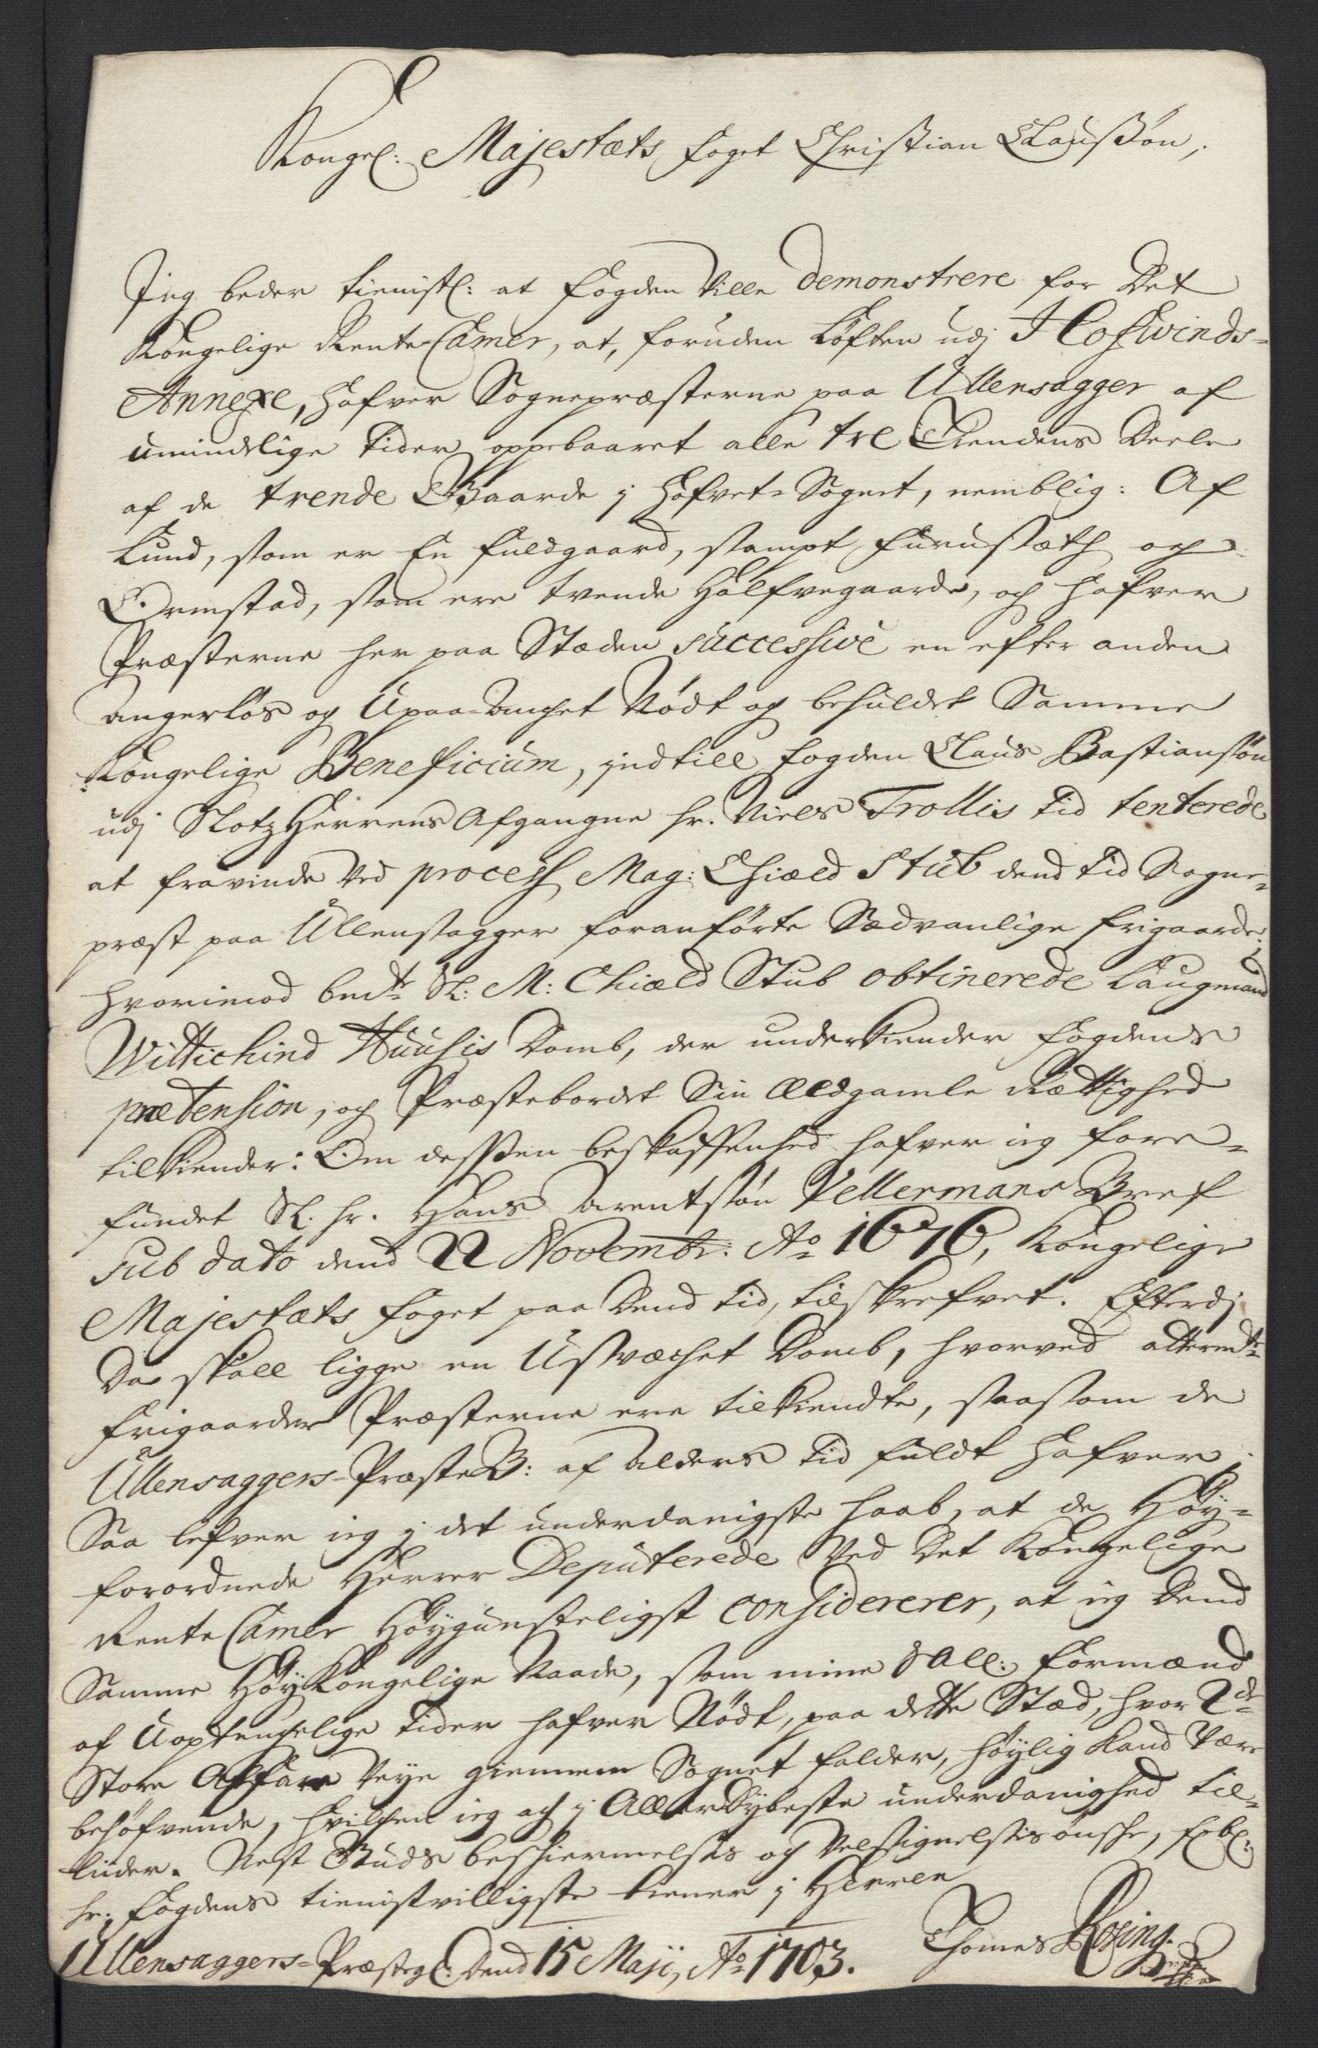 Kongel: Majestæts foget Christian Claussøn,
Jeg beder tienistl: at fogden ville demonstrere for Det
Kongelige Rente Camer, at, foruden Løften udj Hofwinds-
Annexe, hafver Sognepræsterne paa Ullensagger af
umindelige tider oppebaaret alle tre Tiendens Deele
af de trende Gaarde j Hofvet-Sognet, nemblig: Af
Lund, som er En fuldgaard, sampt Furusæth og
Ormstad, som ere tvende Halfvegaarde, og hafver
Præsterne her paa Stæden successive en efter anden
angerløs og Upaa-anchet Nødt og beholdet Samme
Kongelige Beneficium, indtill fogden Claus Bastiansøn
udj Slotz Herrens Afgangne hr. Niels Trollis tid tenterede
at fravinde ved process Mag: Chiæld Stub dend tid Sogne-
præst paa Ullensagger foranførte Sædvanlige frigaarde:
hvorimod bemte Sl: M: Chiæld Stub obtinerede Laugmand
Wittichind Huusis Domb, der underkiender fogdens
prætension, og Præstebordet Sin Ældgamle Rættighed
tilkiender: Om dessen beskaffenhed hafver ieg fore-
fundet Sl. hr. Hans Arentsøn Pellermans Bref
sub dato dend 22 Novembr: Ao 1676, Kongelige
Majestæts foget paa Dend tid, tilskrefvet. Efterdj
Da skall ligge en Usvæchet Domb, hvorved
frigaarder Præsterne ere tilkiendte, saasom de
Ullensaggers-PræsteB: af alders tid fuldt hafver,
Saa lefver ieg j det underdanigste haab, at de Høy-
forordnede Herrer Deputerede ved Det Kongelige
Rente Camer Høygunsteligst considererer, at ieg Dend
Samme HøyKongelige Naade, som mine Sall: formænd
af Uoptenchelige tider hafver Nødt, paa dette Stæd, hvor 2de
Store Alfare Veye giennem Sognet falder, høylig kand være
behøfvende, hvilchen ieg og j Allerdybeste underdanighed til-
lider. Nest Guds beschiermelsis og Velsignelsis ønsche, forbl:
hr. fogdens tienistvilligste tiener j Herren
Thomes Rosing.
Ullensaggers-Præsteg: Dend 15 Maji, Ao 1703.